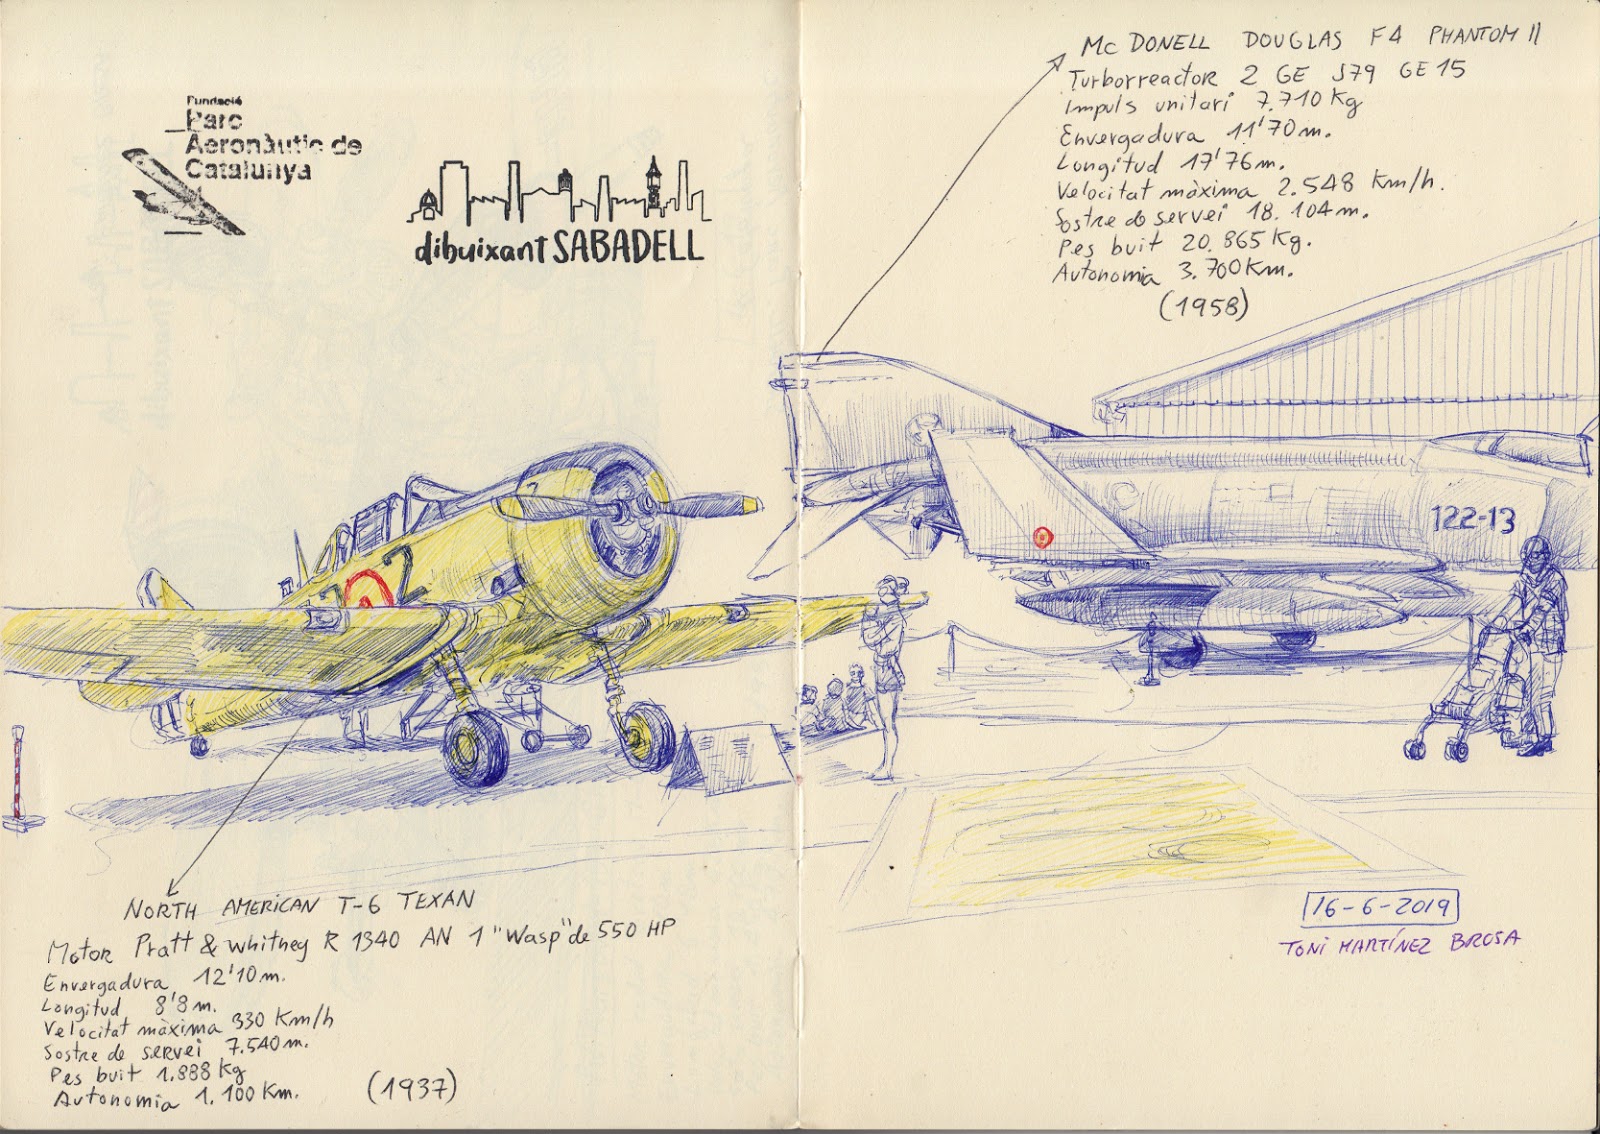 Fundació
Parc
Aeronàutic de
Catalunya
dibuixant SABADELL
Mc DONELL DOUGLAS F4 PHANTOM II
Turborreactor 2 GE J79 GE 15
Impuls unitari 7.710 Kg
Envergadura 11'70 m.
Longitud 17'76 m.
Velocitat màxima 2.548 Km/h.
Sostre de servei 18.104 m.
Pes buit 20.865 Kg.
Autonomia 3.700 Km.
(1958)
2
122-13
NORTH AMERICAN T-6 TEXAN
Motor Pratt & Whitney R 1340 AN 1 "Wasp" de 550 HP
Envergadura 12'10 m.
Longitud 8'8 m.
Velocitat màxima 330 Km/h
Sostre de servei 7.540 m.
Pes buit 1.888 Kg
Autonomia 1.100 Km.
(1937)
16-6-2019
TONI MARTÍNEZ BROSA